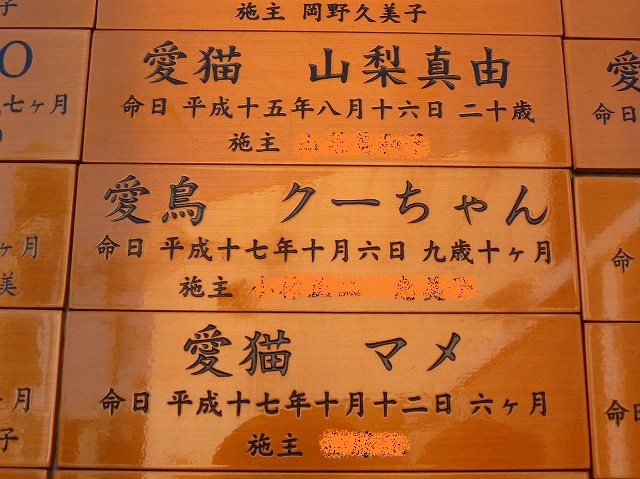 施主 岡野久美子
愛猫 山梨真由
命日 平成十五年八月十六日 二十歳
施主
愛鳥 クーちゃん
命日 平成十七年十月六日 九歳十ヶ月
施主
愛猫 マメ
命日 平成十七年十月十二日 六ヶ月
施主
子
七ヶ月
ヶ月
美
月
子
愛
命日
命
命日